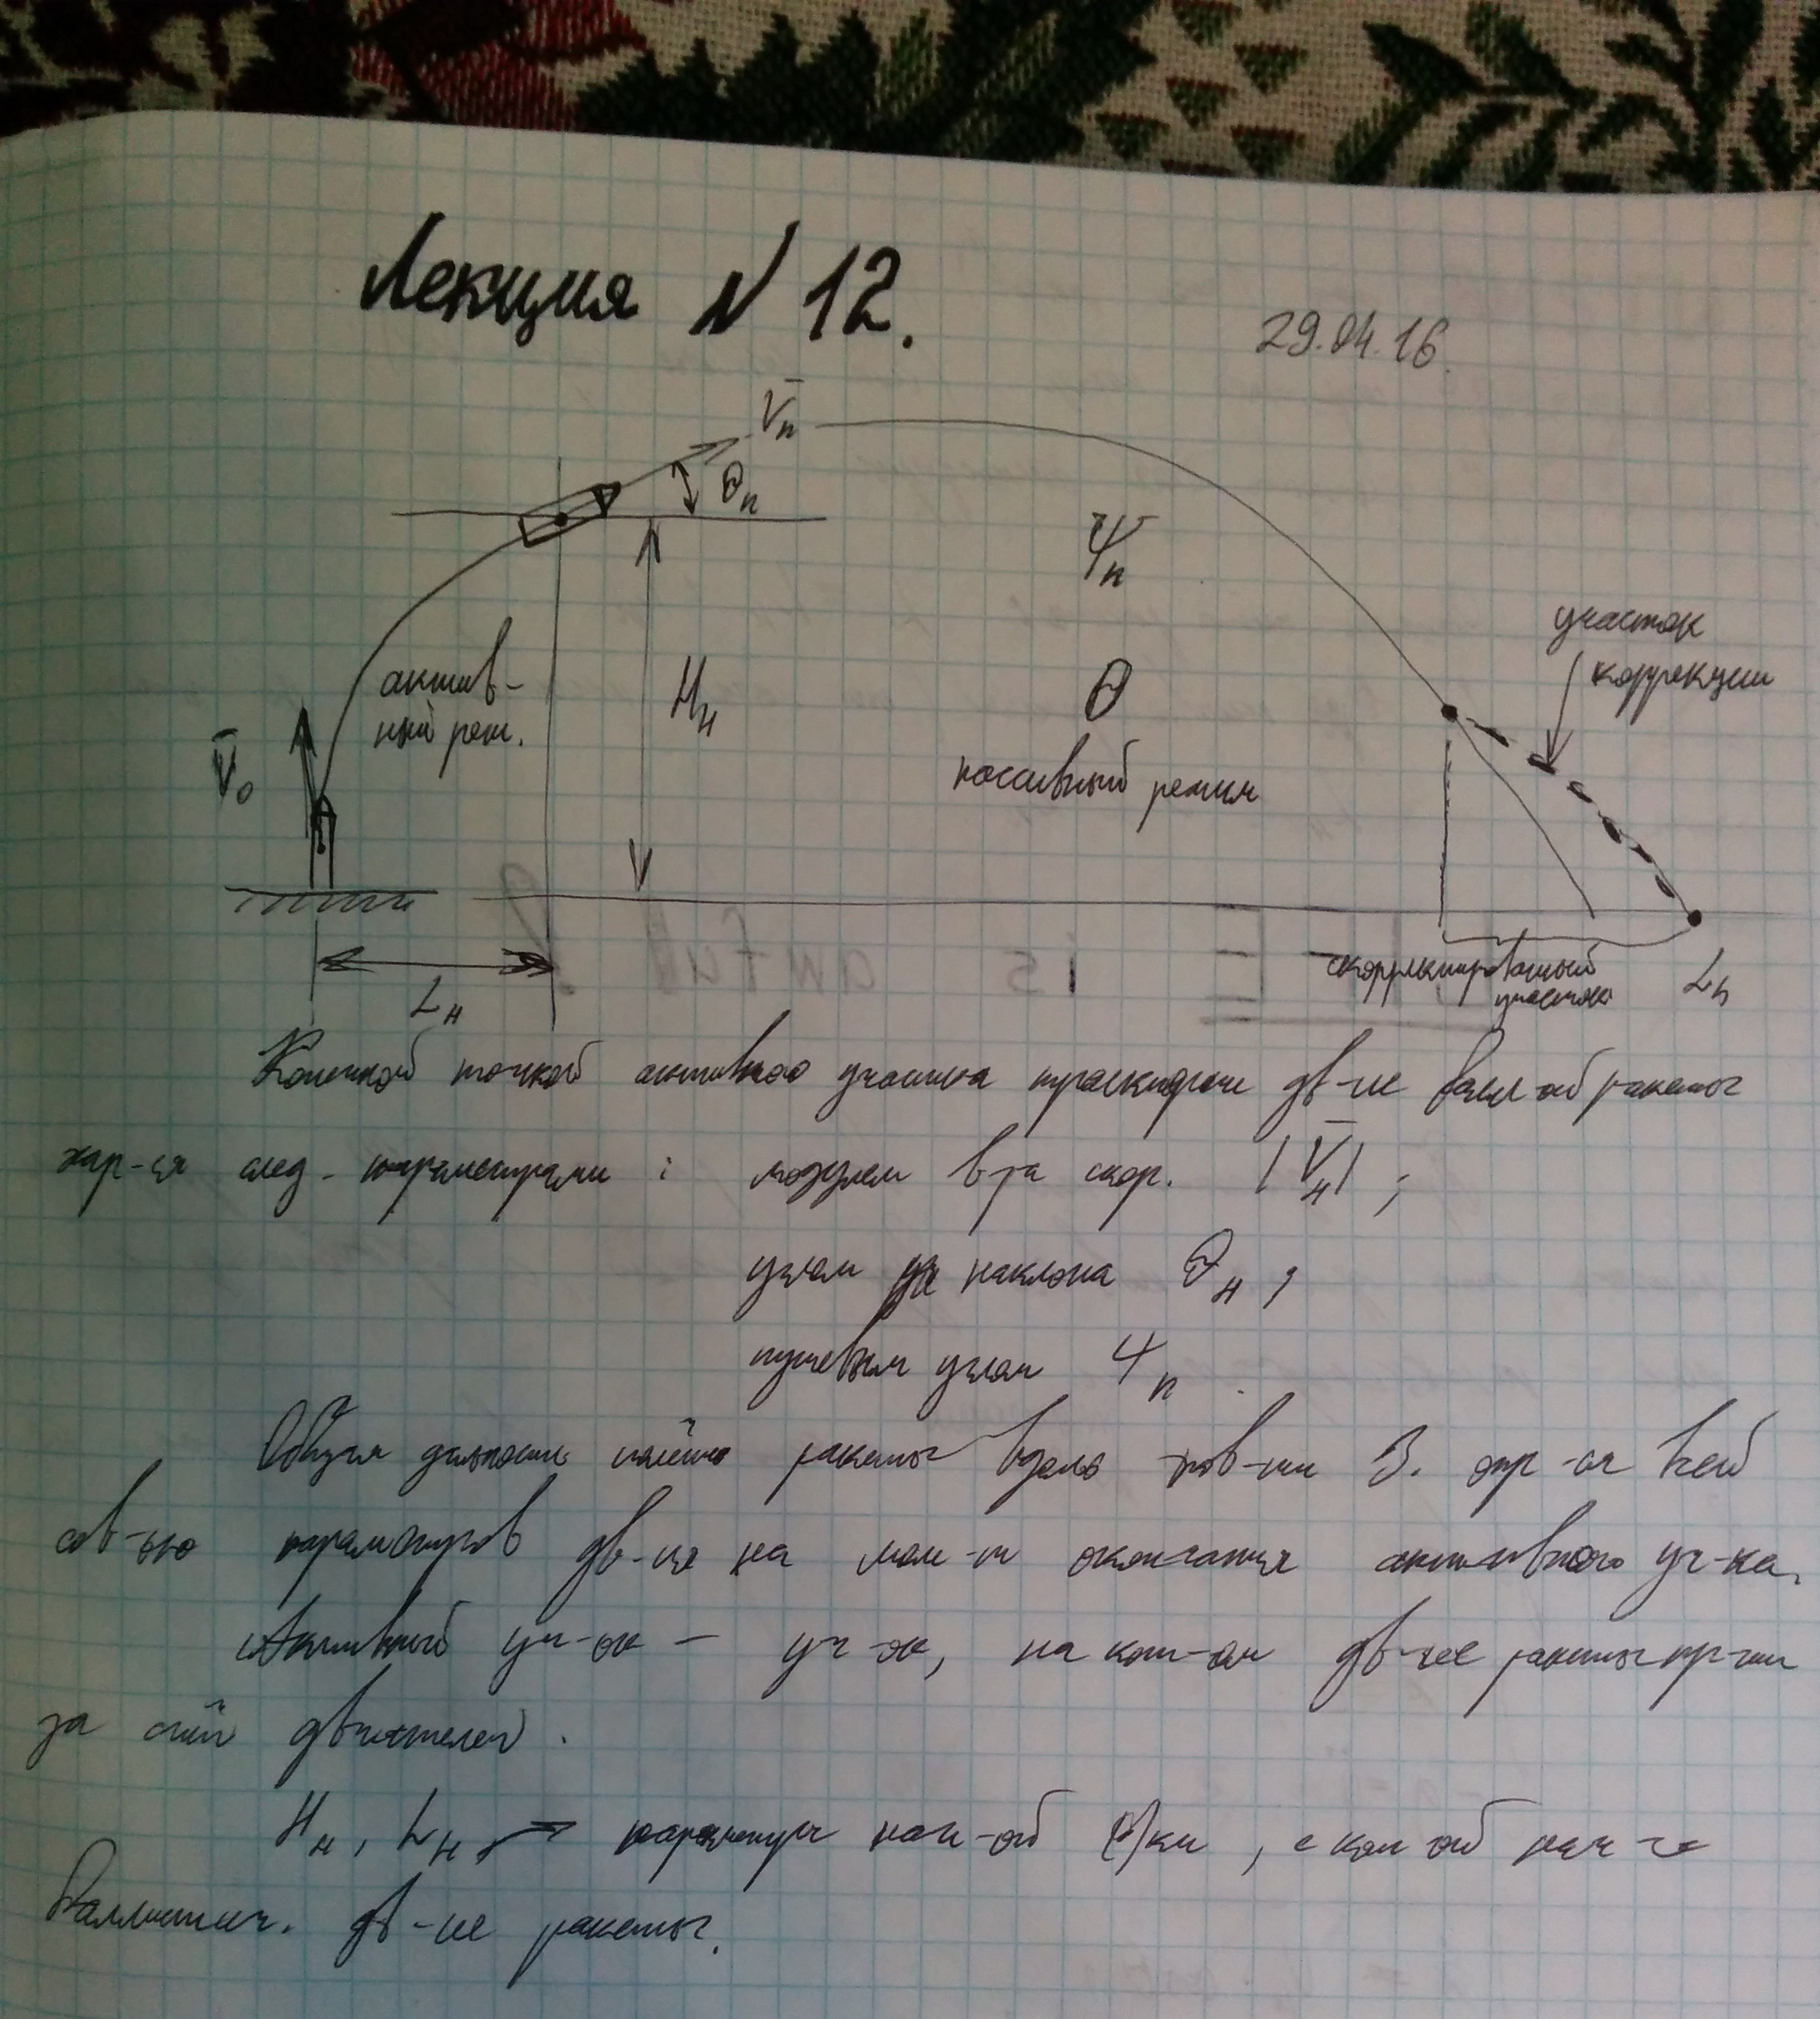 Лекция N 12.
29.04.16
V̄п
θп
Ψ̄п
участок
коррекции
актив-
ный реж.
Hн
θ
V̄₀
пассивный режим
скорректированный
участок
Lп
Lн
Конечной точкой активного участка траектории дв-ие балл-ой ракеты
хар-ся след. параметрами : модулем в-ра скор. |V̄н| ;
углом наклона θн ;
путевым углом Ψп .
Общая дальность полёта ракеты вдоль пов-ти З. опр-ся всей
сов-ью параметров дв-ия на мом-т окончания активного уч-ка.
Активный уч-ок – уч-ок, на кот-ом дв-ие ракеты пр-ит
за счёт двигателей .
Hн, Lн, → параметры нач-ой , с кот-ой нач-
баллистич. дв-ие ракеты.